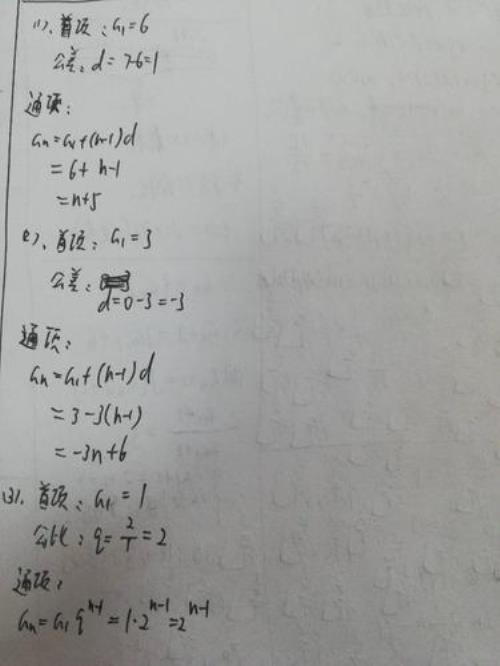 (1)、首项：a₁=6
公差：d=7-6=1
通项：
aₙ=a₁+(n-1)d
=6+n-1
=n+5
(2)、首项：a₁=3
公差：
d=0-3=-3
通项：
aₙ=a₁+(n-1)d
=3-3(n-1)
=-3n+6
(3)、首项：a₁=1
公比：q=2/1=2
通项：
aₙ=a₁qⁿ⁻¹=1·2ⁿ⁻¹=2ⁿ⁻¹